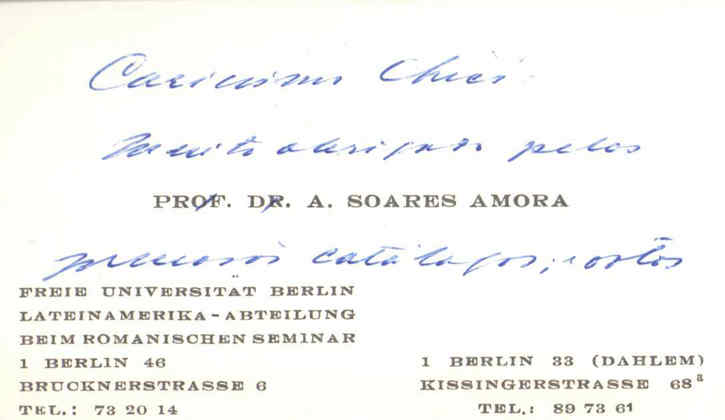 Caríssimo Chico:
Muito obrigado pelos
PROF. DR. A. SOARES AMORA
catálogos;
FREIE UNIVERSITÄT BERLIN
LATEINAMERIKA-ABTEILUNG
BEIM ROMANISCHEN SEMINAR
1 BERLIN 46
BRUCKNERSTRASSE 6
TEL.: 73 20 14
1 BERLIN 33 (DAHLEM)
KISSINGERSTRASSE 68ª
TEL.: 89 73 61